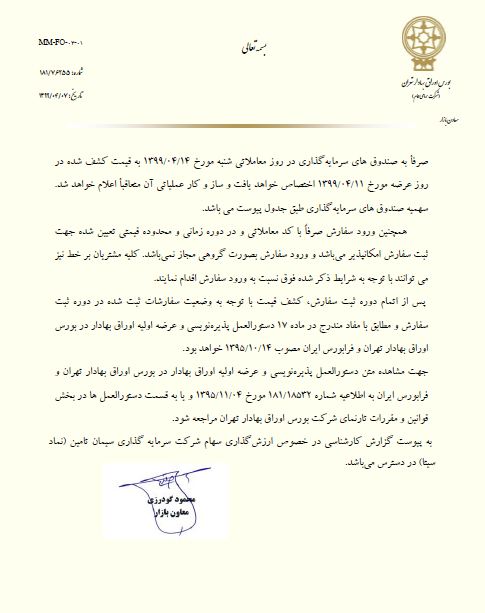 MM-FO-۰۷-۰۱
بسمه تعالی
شماره: ۱۸۱/۷۶۲۵۵
تاریخ: ۱۳۹۹/۰۴/۰۷
بورس اوراق بهادار تهران
(شرکت سهامی عام)
معاون بازار
صرفاً به صندوق های سرمایه‌گذاری در روز معاملاتی شنبه مورخ ۱۳۹۹/۰۴/۱۴ به قیمت کشف شده در
روز عرضه مورخ ۱۳۹۹/۰۴/۱۱ اختصاص خواهد یافت و ساز و کار عملیاتی آن متعاقباً اعلام خواهد شد.
سهمیه صندوق های سرمایه‌گذاری طبق جدول پیوست می باشد.
همچنین ورود سفارش صرفاً با کد معاملاتی و در دوره زمانی و محدوده قیمتی تعیین شده جهت
ثبت سفارش امکانپذیر می‌باشد و ورود سفارش بصورت گروهی مجاز نمی‌باشد. کلیه مشتریان بر خط نیز
می توانند با توجه به شرایط ذکر شده فوق نسبت به ورود سفارش اقدام نمایند.
پس از اتمام دوره ثبت سفارش، کشف قیمت با توجه به وضعیت سفارشات ثبت شده در دوره ثبت
سفارش و مطابق با مفاد مندرج در ماده ۱۷ دستورالعمل پذیره‌نویسی و عرضه اولیه اوراق بهادار در بورس
اوراق بهادار تهران و فرابورس ایران مصوب ۱۳۹۵/۱۰/۱۴ خواهد بود.
جهت مشاهده متن دستورالعمل پذیره‌نویسی و عرضه اولیه اوراق بهادار در بورس اوراق بهادار تهران و
فرابورس ایران به اطلاعیه شماره ۱۸۱/۱۸۵۳۲ مورخ ۱۳۹۵/۱۱/۰۴ و یا به قسمت دستورالعمل ها در بخش
قوانین و مقررات تارنمای شرکت بورس اوراق بهادار تهران مراجعه شود.
به پیوست گزارش کارشناسی در خصوص ارزش‌گذاری سهام شرکت سرمایه گذاری سیمان تامین (نماد
سیتا) در دسترس می‌باشد.
محمود گودرزی
معاون بازار